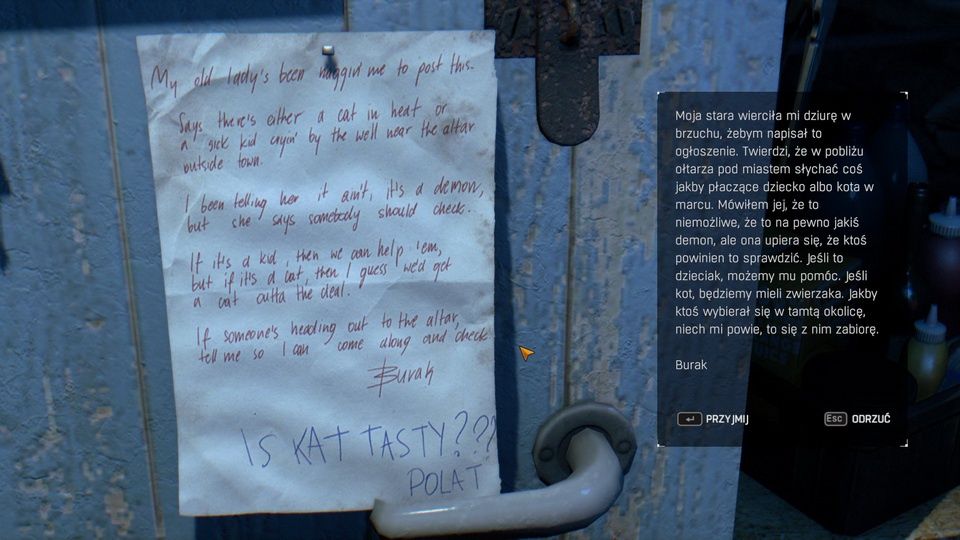 My old lady's been naggin' me to post this.
Says there's either a cat in heat or
a sick kid cryin' by the well near the altar
outside town.
I been telling her it ain't, it's a demon,
but she says somebody should check.
If it's a kid, then we can help 'em,
but if it's a cat, then I guess we'd get
a cat outta the deal.
If someone's heading out to the altar,
tell me so I can come along and check
Burak
IS KAT TASTY???
POLAT
Moja stara wierciła mi dziurę w
brzuchu, żebym napisał to
ogłoszenie. Twierdzi, że w pobliżu
ołtarza pod miastem słychać coś
jakby płaczące dziecko albo kota w
marcu. Mówiłem jej, że to
niemożliwe, że to na pewno jakiś
demon, ale ona upiera się, że ktoś
powinien to sprawdzić. Jeśli to
dzieciak, możemy mu pomóc. Jeśli
kot, będziemy mieli zwierzaka. Jakby
ktoś wybierał się w tamtą okolicę,
niech mi powie, to się z nim zabiorę.
Burak
PRZYJMIJ
Esc ODRZUĆ